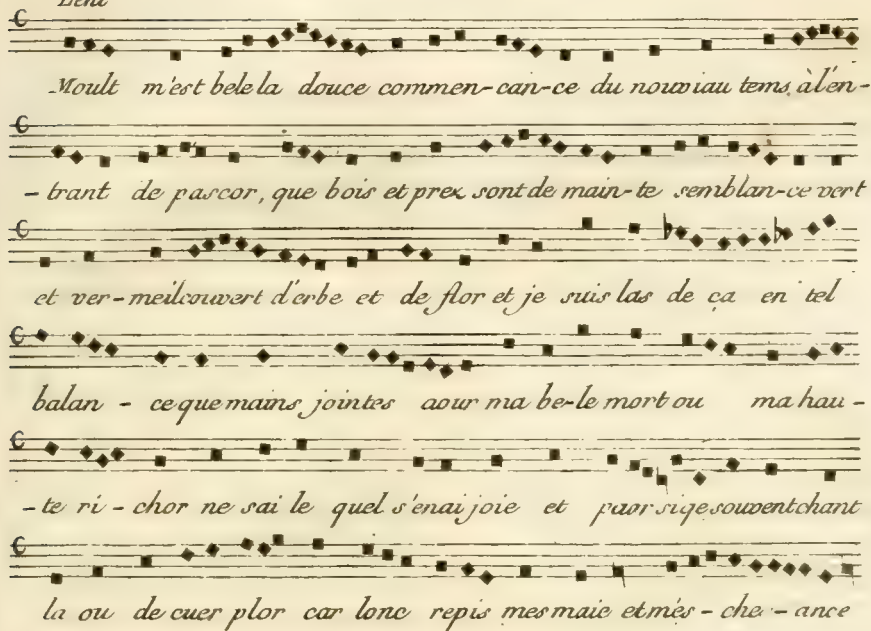 Lent
Moult m'est bele la douce commen-can-ce du nouviau tems, à l'en-
-trant de pascor, que bois et prex sont de main-te semblan-ce vert
et ver-meil couvert d'erbe et de flor et je suis las de ça en tel
balan-ce que mains jointes aour ma be-le mort ou ma hau-
-te ri-chor ne sai le quel s'en ai joie et paor si qe souvent chant
la ou de cuer plor car lonc repis mesmaie et més-che-ance